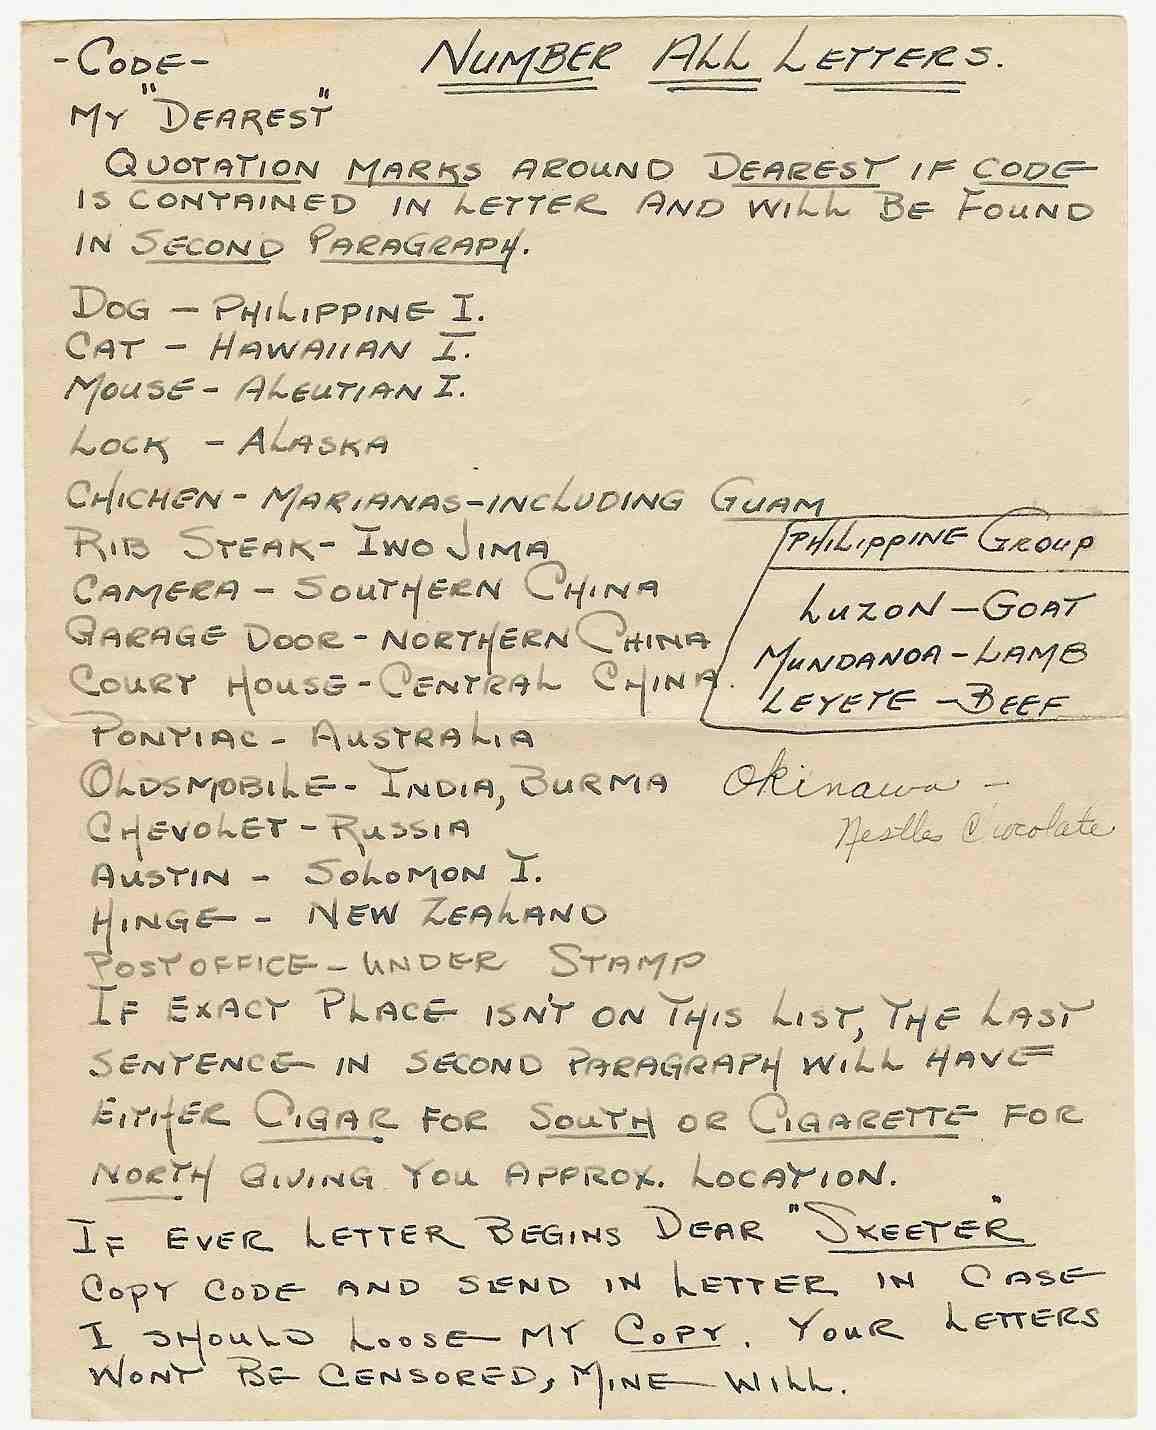 -CODE-
NUMBER ALL LETTERS.
MY "DEAREST"
QUOTATION MARKS AROUND DEAREST IF CODE
IS CONTAINED IN LETTER AND WILL BE FOUND
IN SECOND PARAGRAPH.
DOG - PHILIPPINE I.
CAT - HAWAIIAN I.
MOUSE - ALEUTIAN I.
LOCK - ALASKA
CHICHEN - MARIANAS-INCLUDING GUAM
RIB STEAK - IWO JIMA
CAMERA - SOUTHERN CHINA
GARAGE DOOR - NORTHERN CHINA
COURT HOUSE - CENTRAL CHINA.
PHILIPPINE GROUP
LUZON - GOAT
MUNDANOA - LAMB
LEYETE - BEEF
PONTIAC - AUSTRALIA
OLDSMOBILE - INDIA, BURMA
Okinawa -
Nestles Chocolate
CHEVOLET - RUSSIA
AUSTIN - SOLOMON I.
HINGE - NEW ZEALAND
POSTOFFICE - UNDER STAMP
IF EXACT PLACE ISN'T ON THIS LIST, THE LAST
SENTENCE IN SECOND PARAGRAPH WILL HAVE
EITHER CIGAR FOR SOUTH OR CIGARETTE FOR
NORTH GIVING YOU APPROX. LOCATION.
IF EVER LETTER BEGINS DEAR "SKEETER"
COPY CODE AND SEND IN LETTER IN CASE
I SHOULD LOOSE MY COPY. YOUR LETTERS
WONT BE CENSORED, MINE WILL.